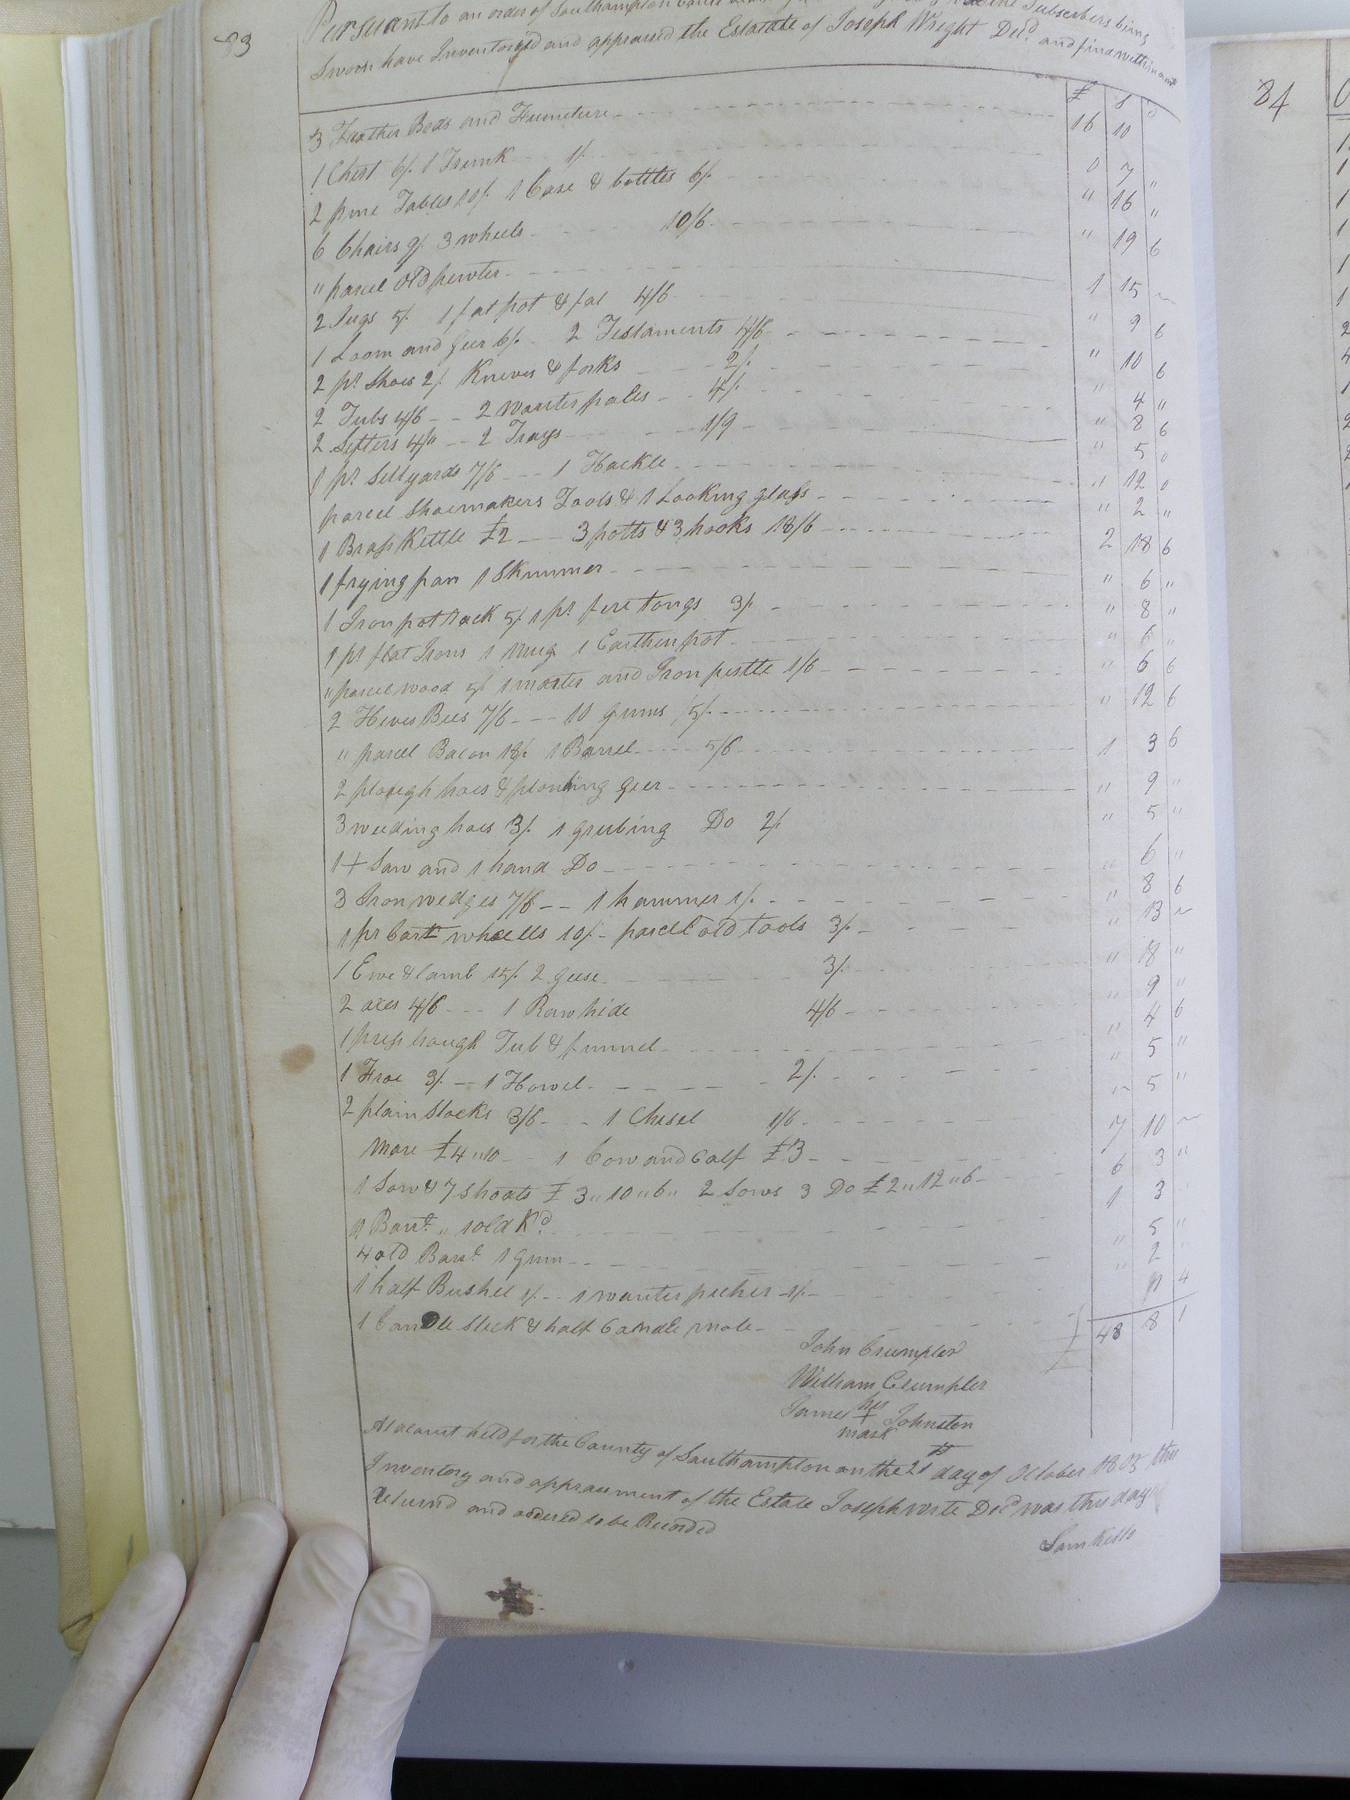 83
Pursuant to an order of Southampton the Subscribers being
Sworn have Inventoryed and appraised the Estatate of Joseph Wright Decd. and find
£ s D
3 Feather Beds and Furniture 16 10 "
1 Chest 6/. 1 Trunk 1/. 0 7 "
2 pine Tables 10/. 1 Case & bottles 6/. " 16 "
6 Chairs 9/. 3 wheels 10/6 " 19 6
" parcel old pewter 1 15 ~
2 Jugs 5/. 1 fat pot & fat 4/6 " 9 6
1 Loom and Geer 6/. 2 Testaments 4/6 " 10 6
2 pr. Shoes 2/. Knives & forks 2/. " 4 "
2 Tubs 4/6 2 wauter pales 4/. " 8 6
2 Sifters 2 Trays 1/9 " 5 0
1 pr. Stillyards 7/6 1 Hackle " 12 0
parcel Shoemakers Tools & 1 Looking glass " 2 "
1 Brass Kettle £2 3 potts & 3 hooks 18/6 2 18 6
1 frying pan 1 Skimmer " 6 "
1 Iron pot rack 5/ 1 pr. fire tongs 3/. " 8 "
1 pr flat Irons 1 Mug 1 Earthen pot " 6 "
" parcel wood 5/ 1 morter and Iron pestle 1/6 " 6 6
2 Hives Bees 7/6 10 gums 5/. " 12 6
" parcel Bacon 18/. 1 Barrel 5/6 1 3 6
2 plough hoes & plouhing geer " 9 "
3 weeding hoes 3/. 1 grubing Do 2/. " 5 "
1 + Saw and 1 hand Do 6 "
3 Iron wedges 7/6 1 hammer 1/. " 8 6
1 pr Cart wheells 10/. parcel old tools 3/. " 13 ~
1 Ewe & lamb 15/. 2 geese 3/. " 18 "
2 axes 4/6 1 Raw hide 4/6 " 9 "
1 Tub & funnel " 4 6
1 Froe 3/. 1 Howel 2/. " 5 "
2 plain Stocks 3/6 1 Chesel 1/6 " 5 "
Mare £4"10 1 Cow and Calf £3 7 10 ~
1 Sow & 7 Shoats £3"10"6" 2 Sows 3 Do £2"12"6 6 3 "
1 3
4 old 1 gum " 5 "
1 half Bushel 1/. 1 wauter 1/. " 2
1 Candle Stick & half Candle mole 11 4
48 8 1
John Crumpler
William Crumpler
his
James + Johnston
mark
At a Court held for the County of Southampton on the 21st day of October 1805 this
Inventory and appraisment of the Estate Joseph Decd was this day
Returnd and ordered to be Recorded
Sam Kello
84